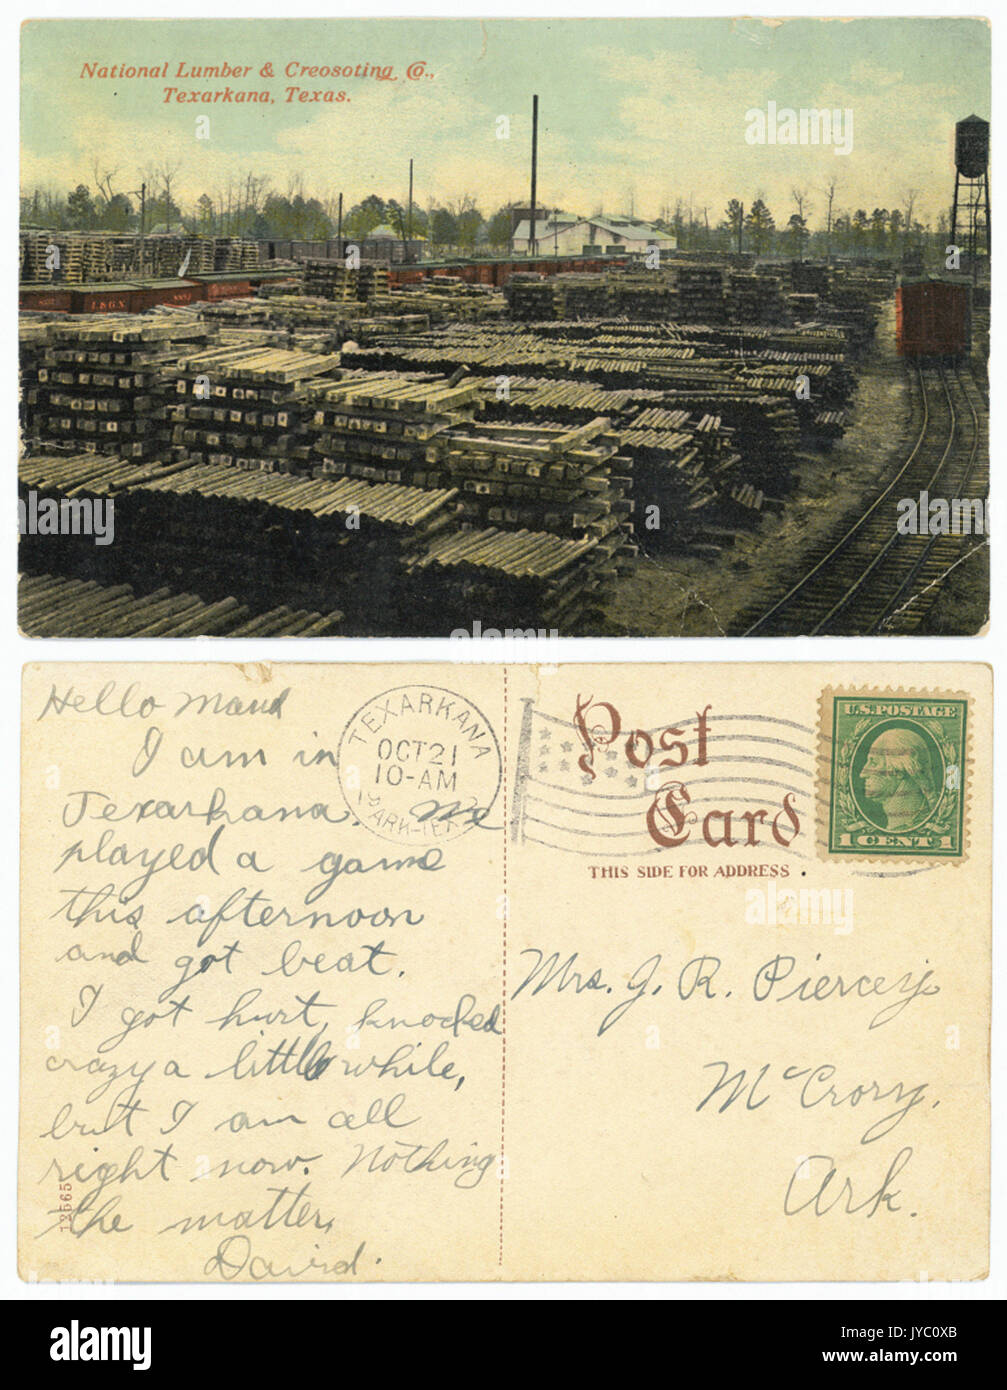 National Lumber & Creosoting Co.,
Texarkana, Texas.
I.&G.N.
Hello Maud
I am in
Texarkana. We
played a game
this afternoon
and got beat.
I got hurt, knocked
crazy a little while,
but I am all
right now. Nothing
the matter,
David.
12565
TEXARKANA
OCT 21
10-AM
19
ARK-TEX
Post
Card
THIS SIDE FOR ADDRESS
U.S. POSTAGE
1 CENT 1
Mrs. J. R. Piercey
McCrory,
Ark.
alamy
alamy stock photo
JYC0XB
www.alamy.com